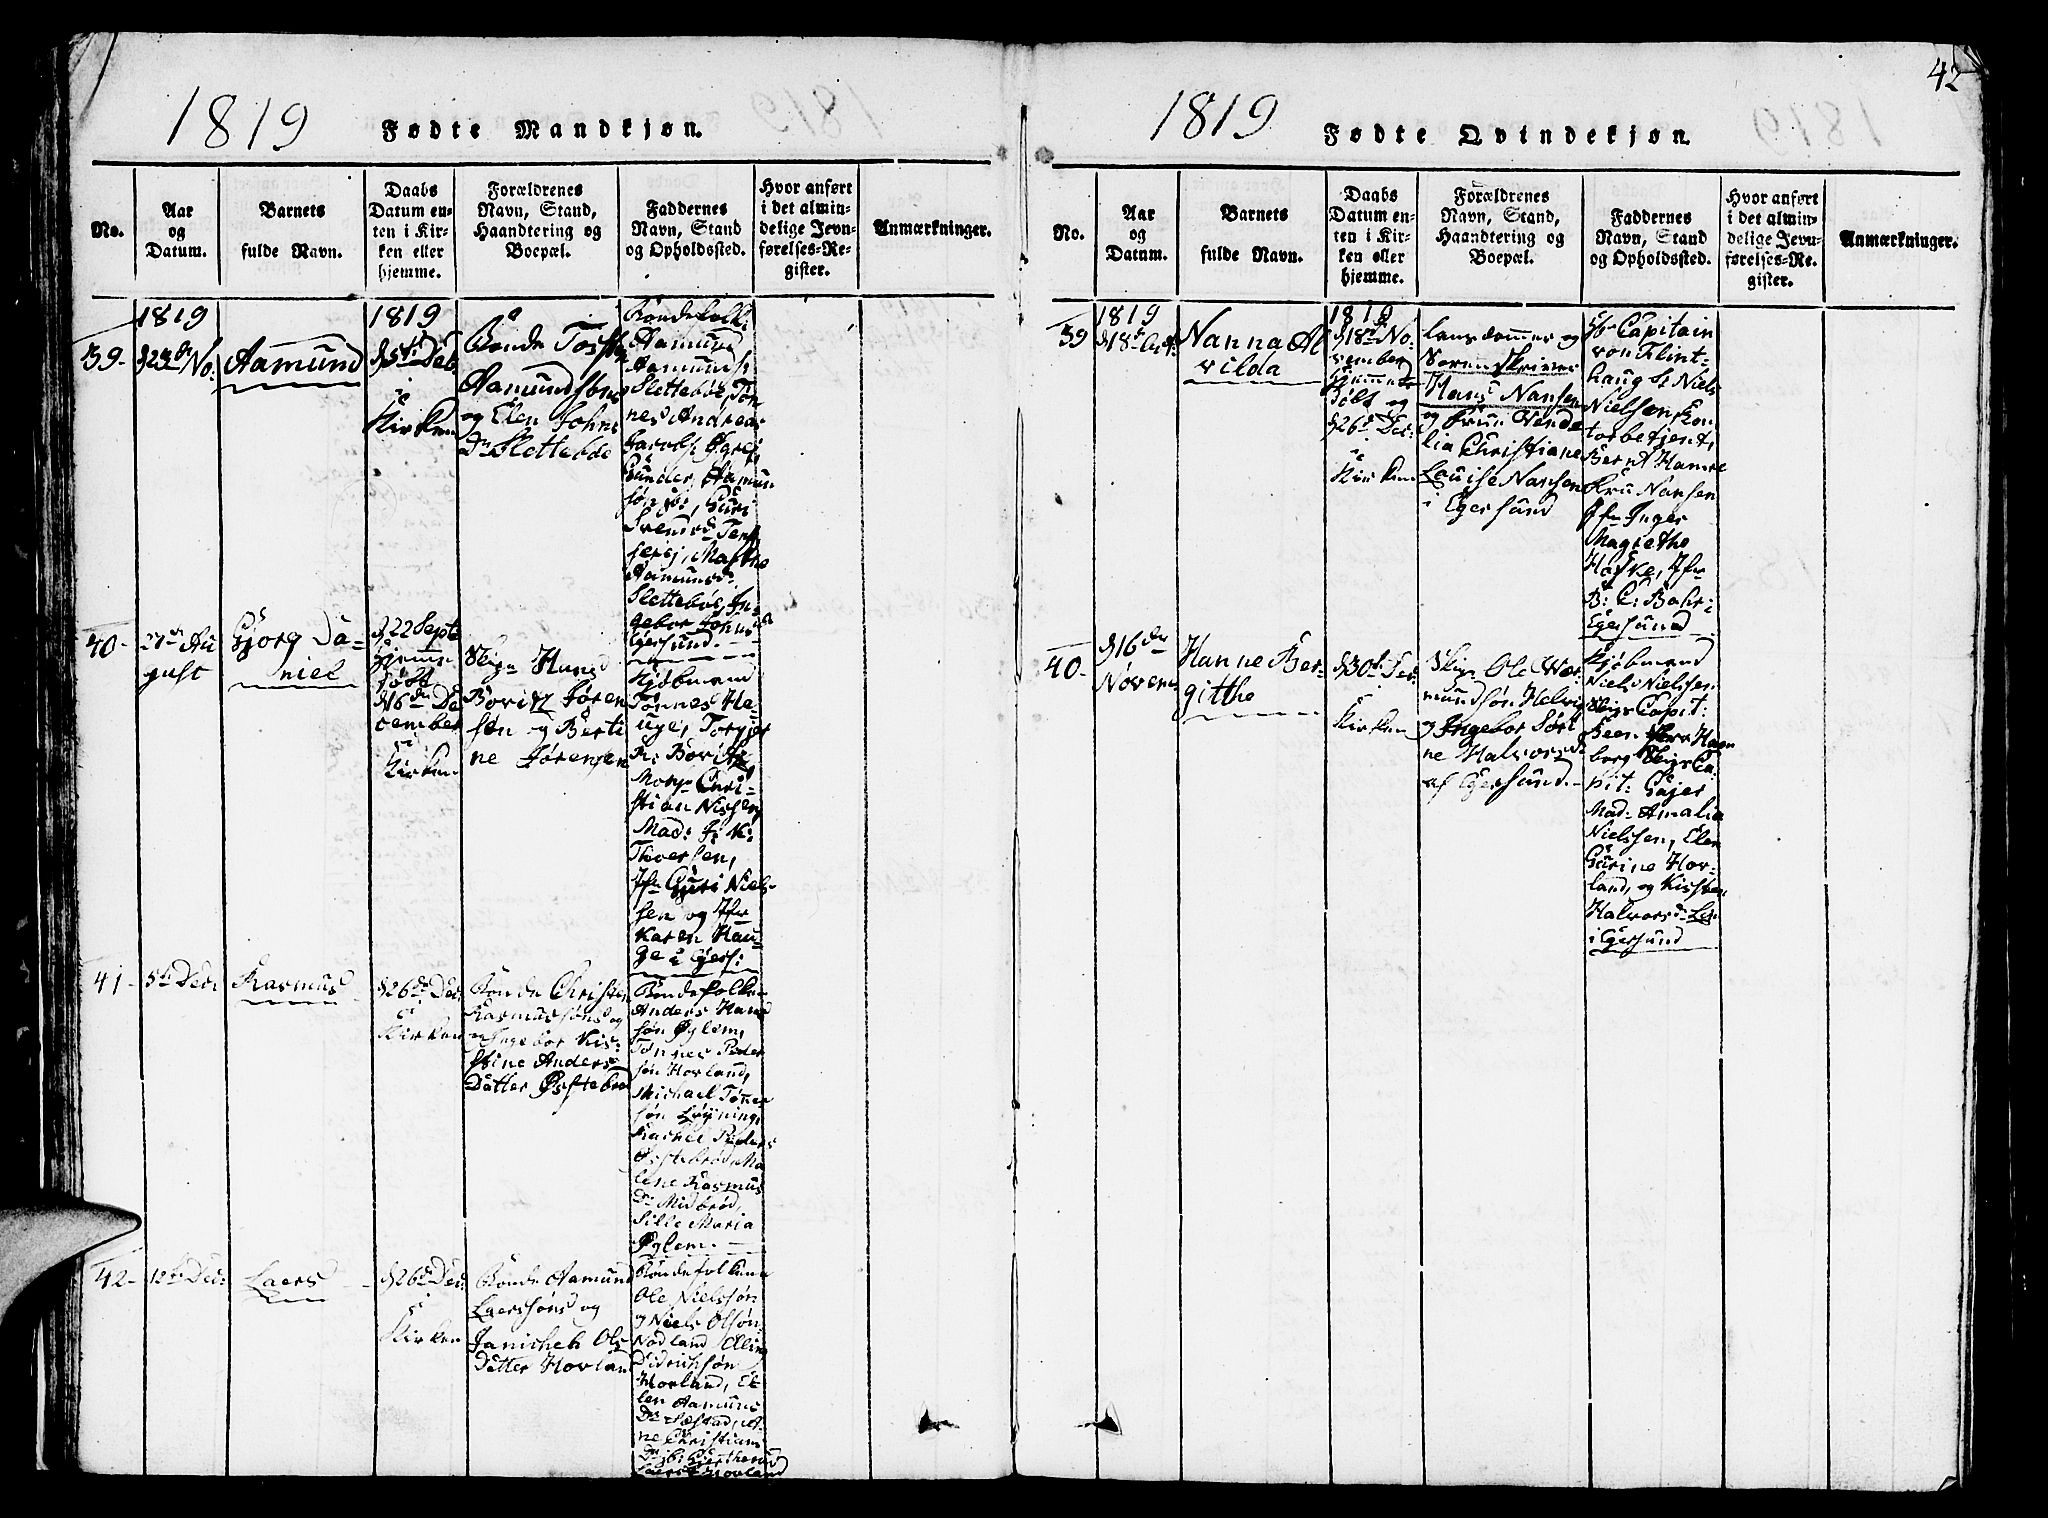 1819
Fødte Mandkjøn.
No.
Aar
og
Datum.
Barnets
fulde Navn.
Daabs
Datum en-
ten i Kir-
ken eller
hjemme.
Forældrenes
Navn, Stand,
Haandtering og
Boepæl.
Faddernes
Navn, Stand
og Opholdssted.
Hvor anført
i det almin-
delige Jevn-
førelses-Re-
gister.
Anmærkninger.
39-
1819
d 23de No:
Aamund
1819
d 5te Deb
i
Kirken
Bonde Tosten
Aamundsøns
og Elen Johns
Dr Slettebøe
Bondefolk:
Aamund
Aamunds:
Slettebøe, Tøn
nes Andreas
Jacobs: Øgrej
Gunder Aamun
søn ib:, Guri
Svends Dr
Marthe
Aamunds Dr
Slettebøe, In-
gebor Johns Dr
Egersund.
40-
27de Au
gust
Gjorg Da-
niel
d 22 Septe
hjemme
døbt
d 16de De
cember
i
Kirken
Skip Hans
Bovitz Jøren
sen og Berti
ne Jørensen
Kjøbmand
Tønnes He-
uge, Torger
R: Bovitz,
Mons Chri-
stian Nissen,
Mad: J: K:
Thversen,
Jfr Guri Niels-
sen og Jfr
Karen Hau-
ge i Egers:
41-
5te Dec:
Rasmus
d 26de Dec:
i
Kirken
Bonde Christen
Rasmussøns og
Ingebor Kis-
stine Anders
Datter Øsstebrø
Bondefolk:
Anders Hans
søn Øglem,
Tønnes Peder
søn Hovland,
Michael Tønnes
søn Løyning,
Rachel Peders
Øsstebrød, Ma
lene Rasmus
Dr Midbrød,
Sille Maria
Øglem.
42-
12te Dec:
Laers
d 26de Dec:
i
Kirken
Bonde Aamund
Laerssøns og
Janicheh Ols
Datter Hovland
Bondefolkene
Ole Nielssøn
og Niels Olsøn
Nodland, Elling
Didrichsøn
Hovland, El-
len Aamunds
Dr Sæstad, An-
ne Christians
Dr ib: Gjerthrud
Laers Dr Hovland
42
1819
Fødte Qvindekjøn.
No.
Aar
og
Datum.
Barnets
fulde Navn.
Daabs
Datum en-
ten i Kir-
ken eller
hjemme.
Forældrenes
Navn, Stand,
Haandtering og
Boepæl.
Faddernes
Navn, Stand
og Opholdssted.
Hvor anført
i det almin-
delige Jevn-
førelses-Re-
gister.
Anmærkninger.
39
1819
d 18de Oct:
Nanna Al
vilda
1819
d 18de No-
vember
hjemme
Døbt og
d 26de Dec:
i
Kirken
Lansdommer og
Sorenskriver
Hans Nansen
og Fruu Vende
lia Christiane
Louise Nansen
i Egersund
Hr Capitain
von Flint-
haug Sr Niels
Nielsen, Kon
torbetjent,
Bernt Hamre
Fru Nansen
Jfr Inger
Magrethe
Hoske, Jfr
B: C: Bahr i
Egersund
40-
d 16de
Novem
Hanne Ber
gitthe
d 30te Dec:
i
Kirken
Skip Ole Wer
mundsøn Helvig
og Ingebor Søri
ne Halvors Dr
af Egersund.
Kjøbmand
Niels Nielsen
Skips Capit:
Been Hr Haae
berg Skips Ca-
pit: Gajer
Mad: Amalia
Nielssen, Elen
Gurine Hov-
land, og Kissten
Halvors Dr
i Egersund